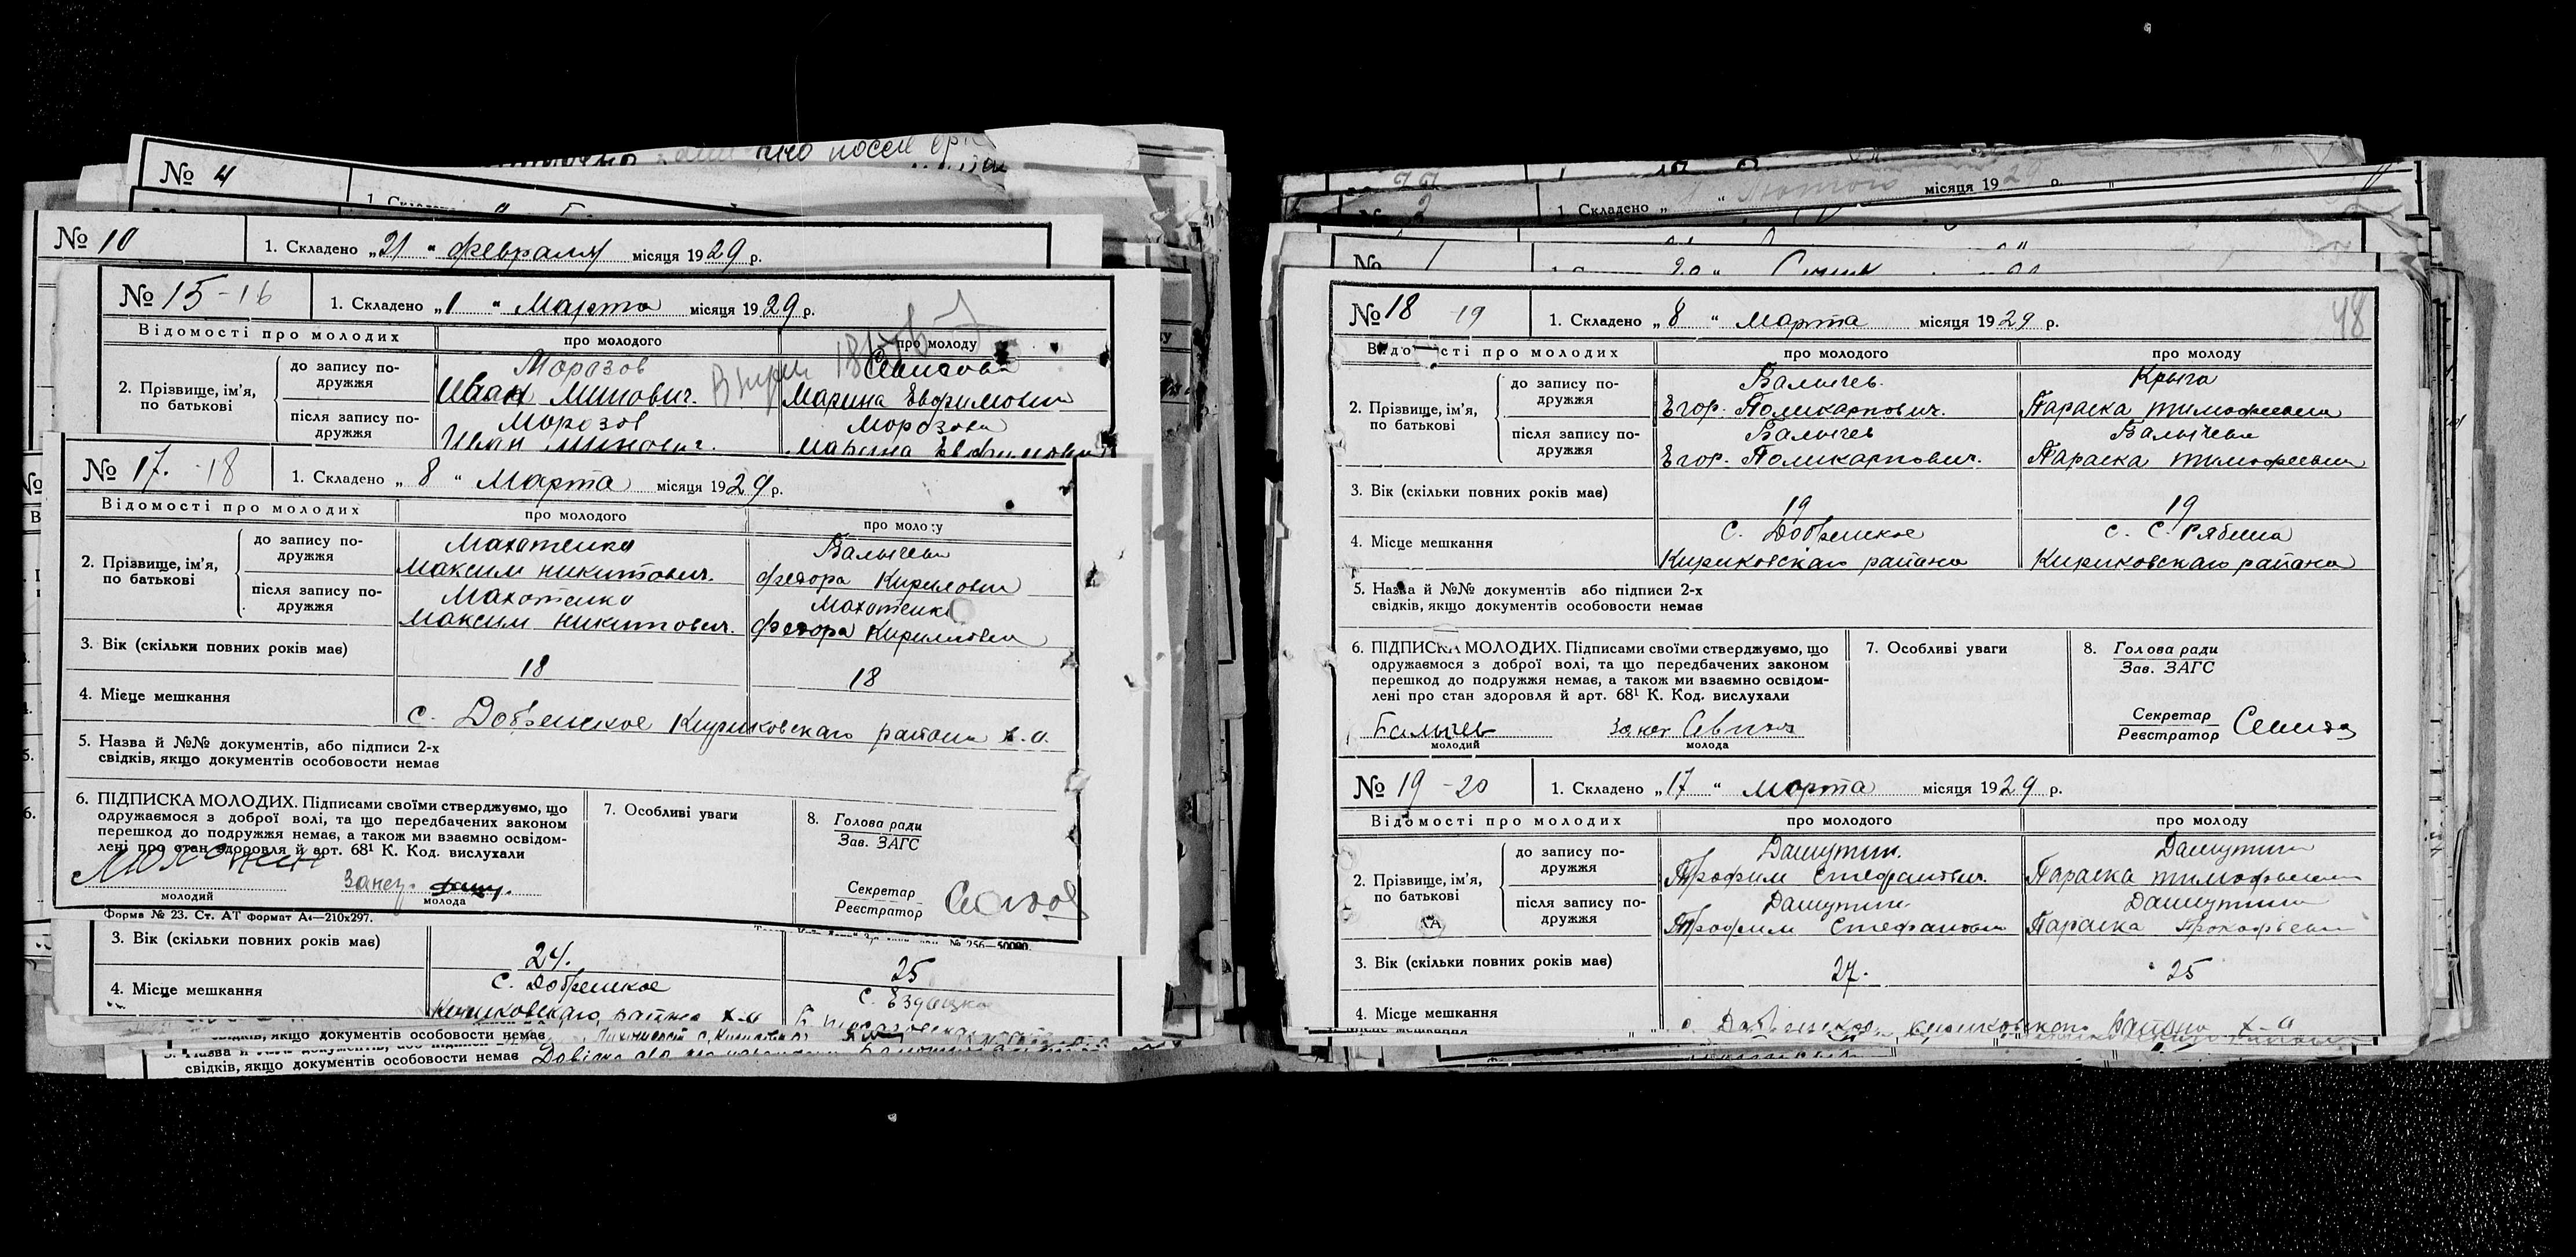 № 4
№ 10
1. Складено „21“ февраля місяця 1929 р.
№ 15-16
1. Складено „1“ Марта місяця 1929 р.
Відомості про молодих
про молодого
про молоду
2. Прізвище, ім'я, по батькові
до запису по-
дружжя
Морозов
Иван Минович.
Марина Евфимовна
після запису по-
дружжя
Морозов
Морозова
Иван Минович.
Марина Евфимовна
№ 17. -18
1. Складено „8“ Марта місяця 1929 р.
Відомості про молодих
про молодого
про молоду
2. Прізвище, ім'я,
по батькові
до запису по-
дружжя
Махотенко
Балычева
Максим Никитович.
Федора Кириловна
після запису по-
дружжя
Махотенко
Махотенко
Максим Никитович.
Федора Кирилловна
3. Вік (скільки повних років має)
18
18
4. Місце мешкання
с. Добренское Кириковскаго района Х.О.
5. Назва й №№ документів, або підписи 2-х
свідків, якщо документів особовости немає
6. ПІДПИСКА МОЛОДИХ. Підписами своїми стверджуємо, що
одружаємося з доброї волі, та що передбачених законом
перешкод до подружжя немає, а також ми взаємно освідом-
лені про стан здоровля й арт. 68¹ К. Код. вислухали
молодий
молода
7. Особливі уваги
8. Голова ради
Зав. ЗАГС
Секретар
Реєстратор
Форма № 23. Ст. АТ формат А₄—210х297.
№ 256—50000.
3. Вік (скільки повних років має)
24.
25
4. Місце мешкання
с. Добренское
Кириковскаго района Х-О
свідків, якщо документів особовости немає
свідків, якщо документів особовости немає
№ 2
1. Складено
місяця 1929 р.
№ 18 -19
1. Складено „8“ Марта місяця 1929 р.
48
Відомості про молодих
про молодого
про молоду
2. Прізвище, ім'я,
по батькові
до запису по-
дружжя
Балычев.
Крыга
Егор. Поликарпович.
Параска Тимофеевна
після запису по-
дружжя
Балычев
Балычева
Егор. Поликарпович.
Параска Тимофеевна
3. Вік (скільки повних років має)
19
19
4. Місце мешкання
с. Добренское
с. С. Рябина
Кириковскаго района
Кириковскаго района
5. Назва й №№ документів або підписи 2-х
свідків, якщо документів особовости немає
6. ПІДПИСКА МОЛОДИХ. Підписами своїми стверджуємо, що
одружаємося з доброї волі, та що передбачених законом
перешкод до подружжя немає, а також ми взаємно освідом-
лені про стан здоровля й арт. 68¹ К. Код. вислухали
Балычев
молодий
молода
7. Особливі уваги
8. Голова ради
Зав. ЗАГС
Секретар
Реєстратор
№ 19 -20
1. Складено „17“ Марта місяця 1929 р.
Відомості про молодих
про молодого
про молоду
2. Прізвище, ім'я,
по батькові
до запису по-
дружжя
Дашутин.
Дашутина
Трофим Стефанович.
Параска Тимофеевна
після запису по-
дружжя
Дашутин.
Дашутина
Трофим Стефанович
Параска Прокофьевна
3. Вік (скільки повних років має)
27.
25
4. Місце мешкання
с. Добренское Кириковскаго района Х-О